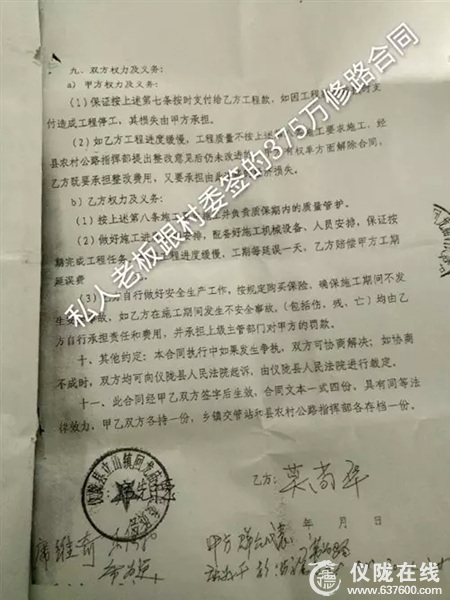 九、双方权力及义务:
a) 甲方权力及义务:
(1)保证按上述第七条按时支付给乙方工程款,如因工程 支
付造成工程停工,其损失由甲方承担。
(2)如乙方工程进度缓慢,工程质量不按上述 施工要求施工,经
县农村公路指挥部提出整改意见后仍未改进 有权单方面解除合同,
乙方既要承担整改费用,又要承担由 损失。
b)乙方权力及义务:
(1)按上述第八条施工 并负责质保期内的质量管护。
(2)做好施工进 安排,配备好施工机械设备、人员安排,保证按
期完成工程任务, 工程进度缓慢,工期每延误一天,乙方赔偿甲方工期
延误费
(3) 方自行做好安全生产工作,按规定购买保险,确保施工期间不发
生安 事故,如乙方在施工期间发生不安全事故。(包括伤、残、亡)均由乙
方自行承担责任和费用,并承担上级主管部门对甲方的罚款。
十、其他约定:本合同执行中如果发生争执,双方可协商解决;如协商
不成时,双方均可向仪陇县人民法院起诉,由仪陇县人民法院进行裁定。
十一、此合同经甲乙双方签字后生效,合同文本一式四份,具有同等法
律效力,甲乙双方各持一份,乡镇交管站和县农村公路指挥部各存档一份。
私人老板跟村委签的375万修路合同
仪陇县立山镇
乙方:莫尚华
年 月 日
席维奇
甲方
仪陇在线
www.637600.com